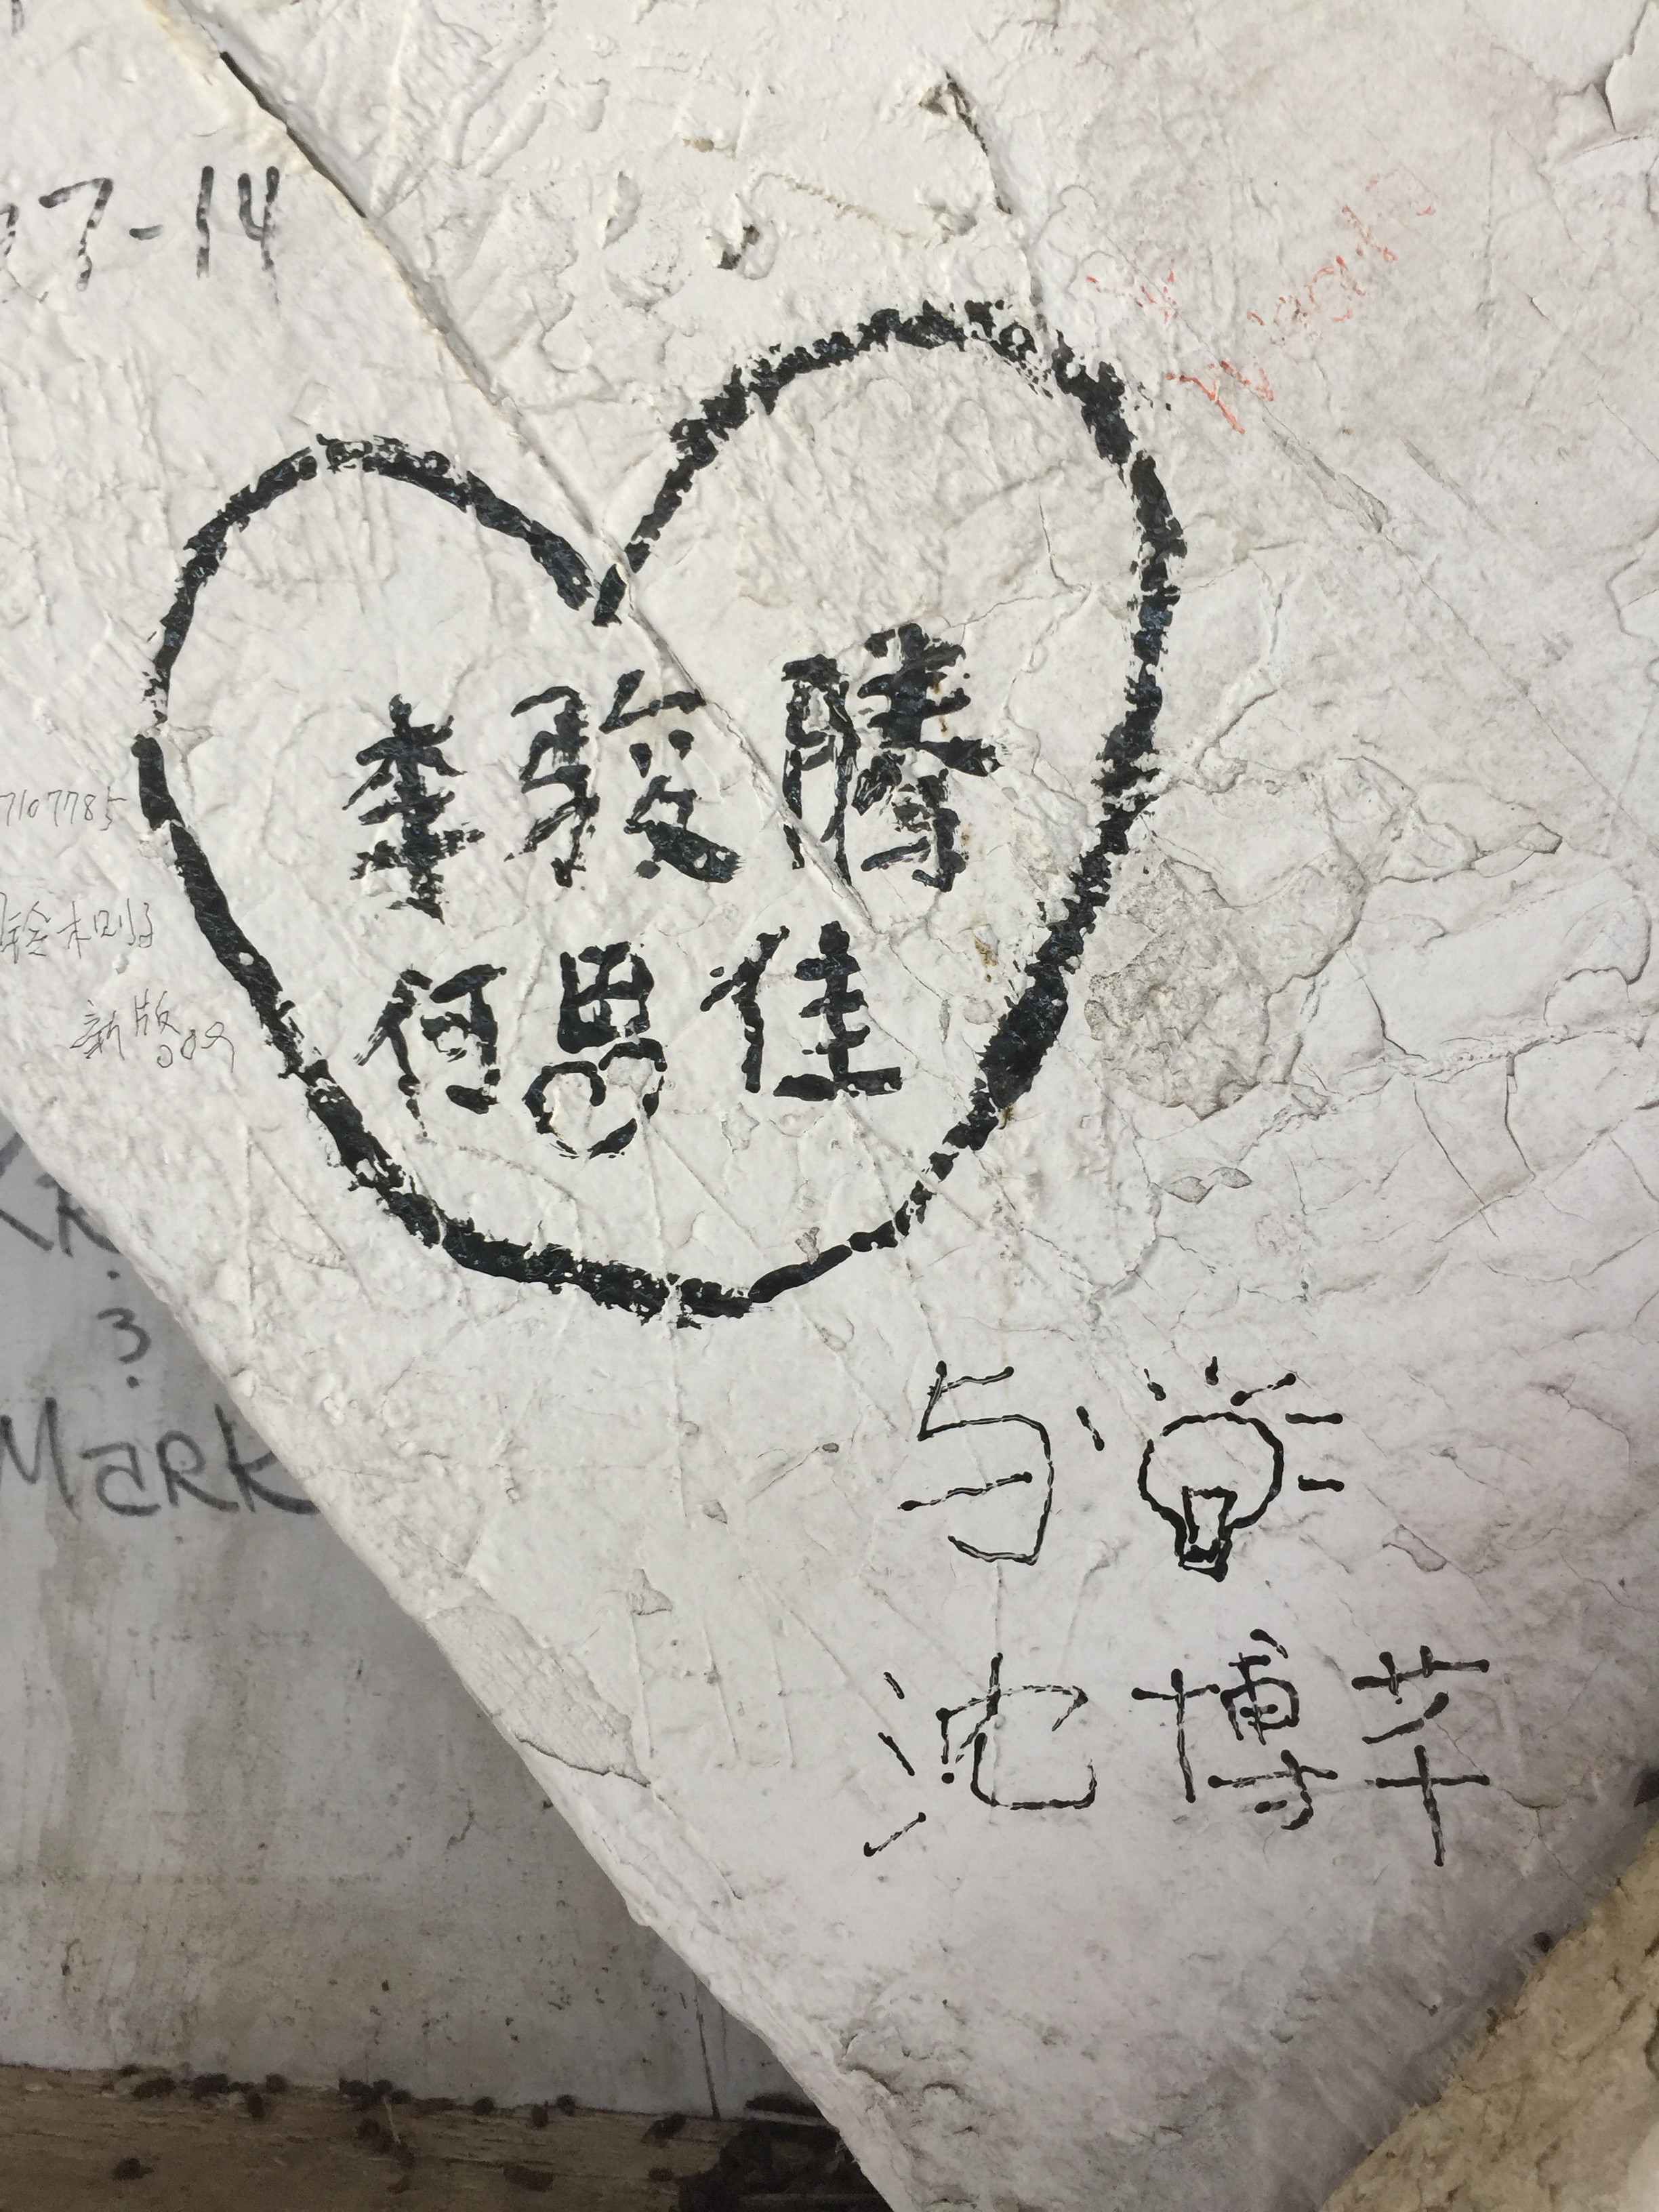 7-14
李駿騰
何思佳
7107785
鈴木
新版
3
Mark
与
沈博苹